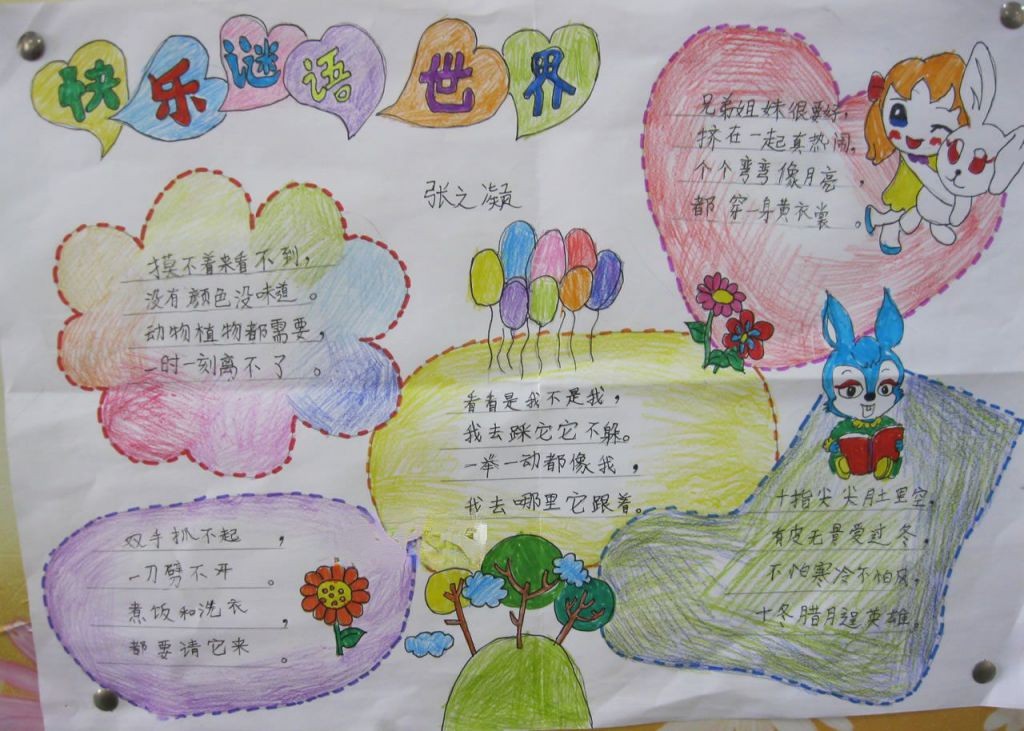 快乐谜语世界
张之凝
兄弟姐妹很要好,
挤在一起真热闹。
个个弯弯像月亮,
都穿一身黄衣裳。
摸不着来看不到,
没有颜色没味道。
动物植物都需要,
一时一刻离不了。
看看是我不是我,
我去踩它它不躲。
一举一动都像我,
我去哪里它跟着。
双手抓不起,
一刀劈不开。
煮饭和洗衣,
都要请它来。
十指尖尖肚里空,
有皮无骨爱过冬。
不怕寒冷不怕风,
十冬腊月逞英雄。